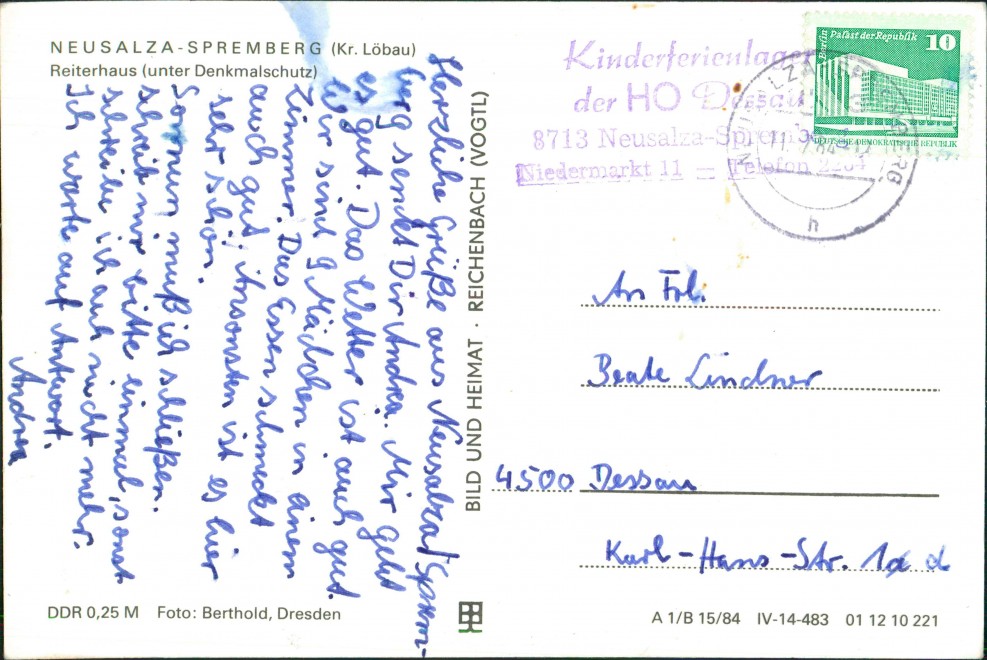 NEUSALZA-SPREMBERG (Kr. Löbau)
Reiterhaus (unter Denkmalschutz)
Herzliche Grüße aus Neusalza/Sprem-
berg sendet Dir Andrea. Mir geht
es gut. Das Wetter ist auch gut.
Wir sind 9 Mädchen in einem
Zimmer. Das Essen schmeckt
auch gut, ansonsten ist es hier
sehr schön.
So nun muß ich schließen.
schreib mir bitte einmal, sonst
schreibe ich auch nicht mehr.
Ich warte auf Antwort.
Andrea
DDR 0,25 M Foto: Berthold, Dresden
BILD UND HEIMAT · REICHENBACH (VOGTL)
Kinderferienlager
der HO Dessau
8713 Neusalza-Spremberg
Niedermarkt 11 — Telefon
Berlin Palast der Republik 10
DEUTSCHE DEMOKRATISCHE REPUBLIK
h
An Frl.
Beate Lindner
4500 Dessau
Karl-Hans-Str. 1 d
A 1/B 15/84 IV-14-483 01 12 10 221